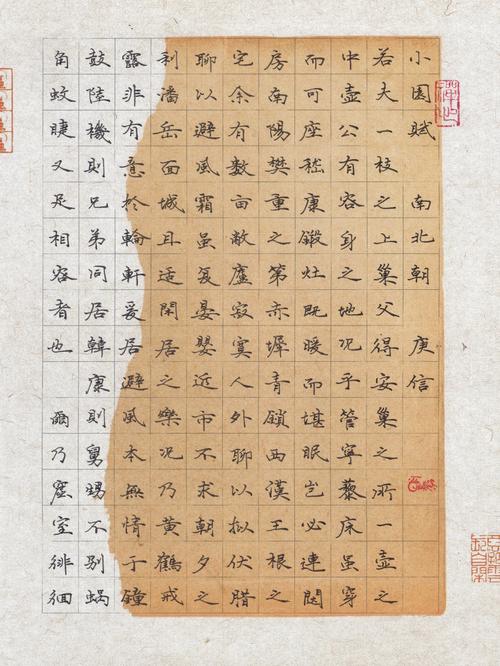 小園賦 南北朝 庾信
若夫一枝之上巢父得安巢之所一壺之
中壺公有容身之地况乎管寧藜床虽穿
而可座嵇康鍛灶既暖而堪眠岂必連闼
房南陽樊重之第赤墀青鎖西漢王根之
宅余有數亩敝廬寂寞人外聊以拟伏腊
聊以避風霜虽复晏嬰近市不求朝夕之
利潘岳面城且适閑居之樂况乃黄鶴戒
露非有意於輪軒爰居避風本無情于鐘
鼓陸機則兄弟同居韓康則舅甥不别蝸
角蚊睫又足相容者也 爾乃窟室徘徊